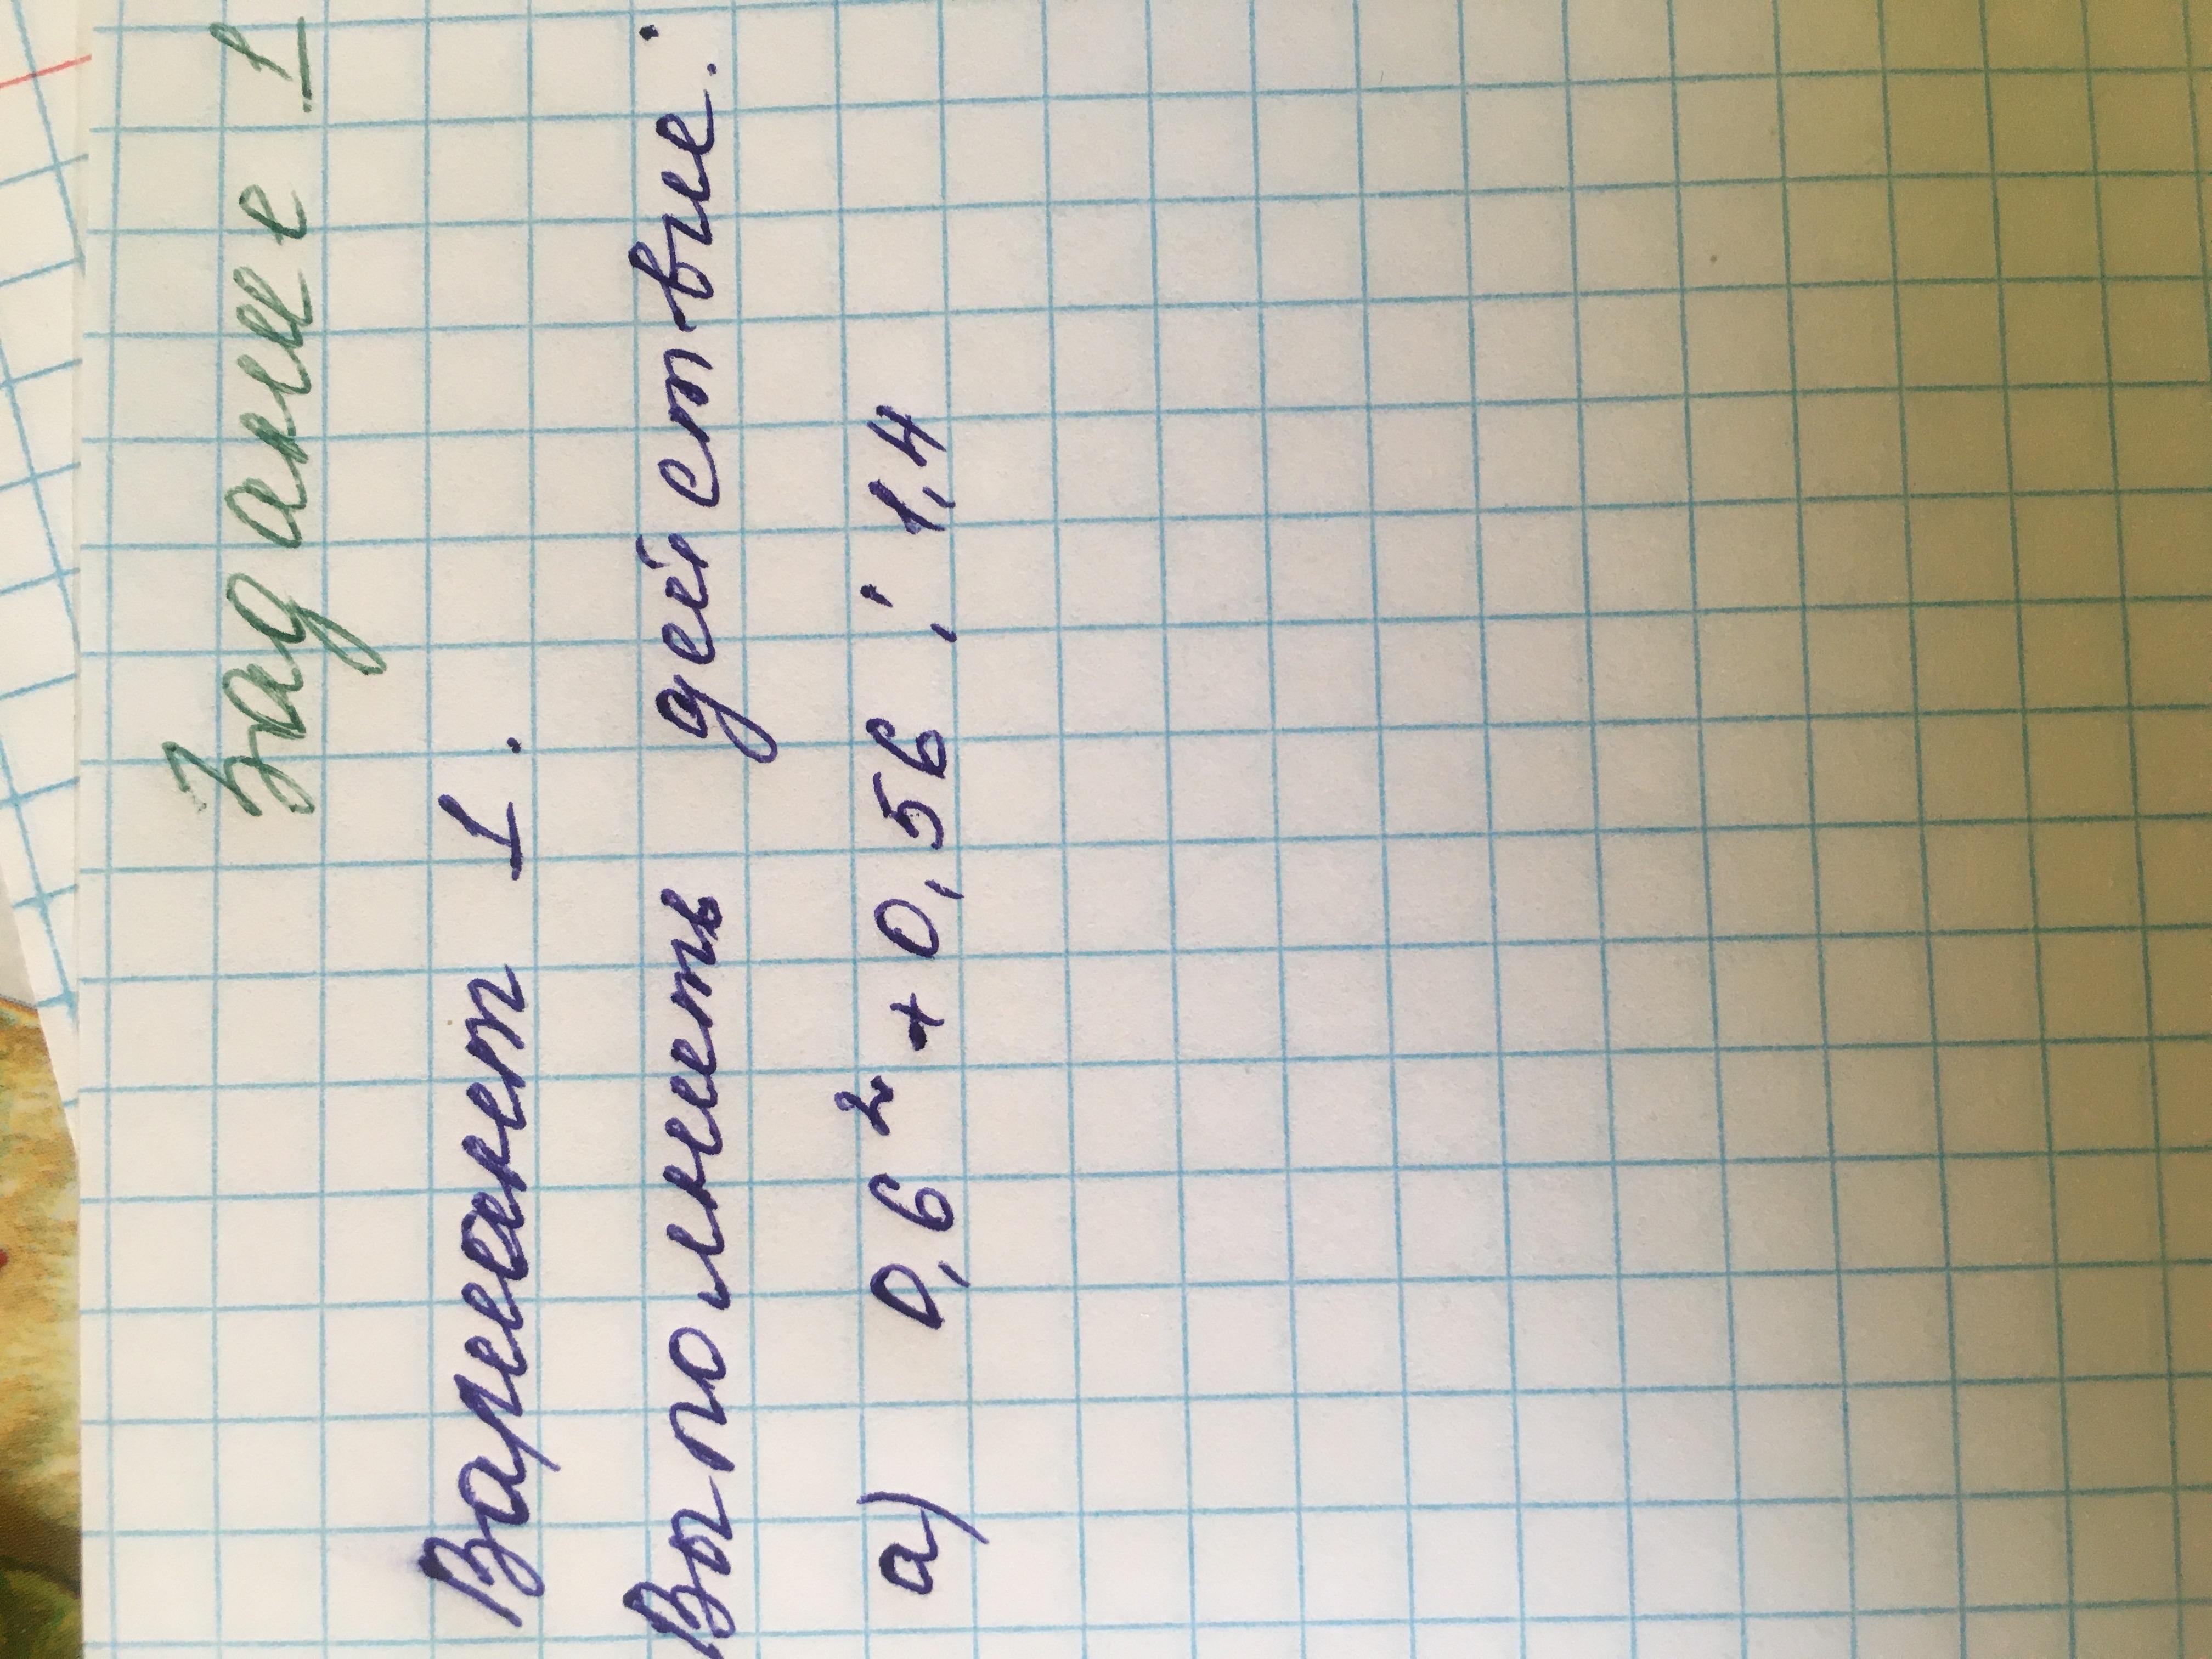 Задание 1
Вариант 1.
Выполнить действие:
а) 0,6² + 0,56 : 1,4